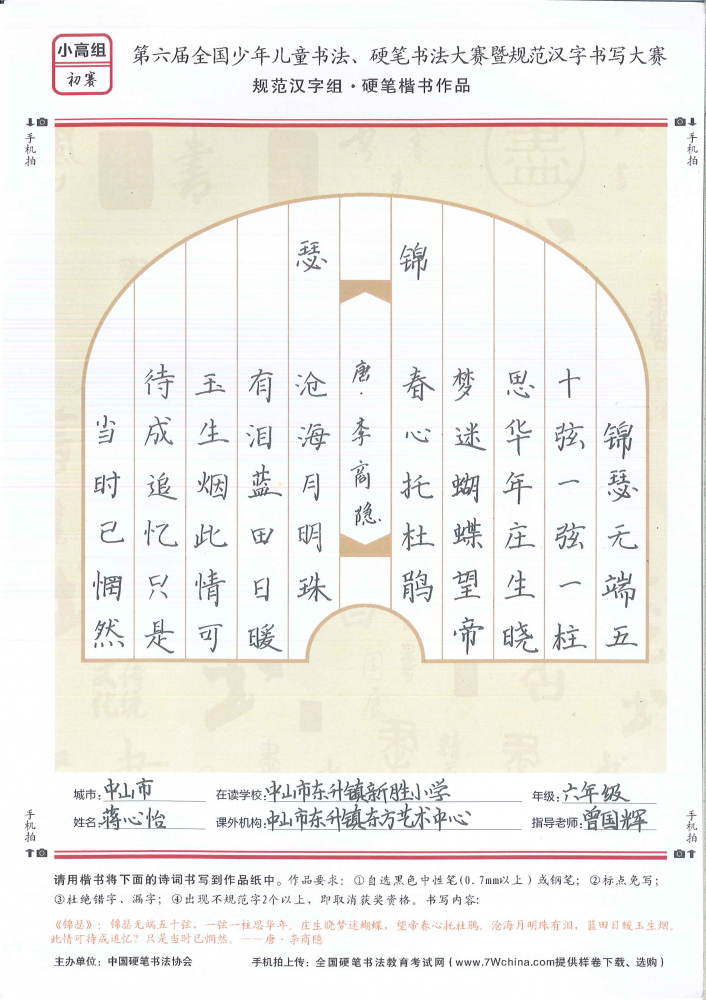 小高组
初赛
第六届全国少年儿童书法、硬笔书法大赛暨规范汉字书写大赛
规范汉字组·硬笔楷书作品
手机拍
手机拍
锦
瑟
唐·李商隐
锦瑟无端五
十弦一弦一柱
思华年庄生晓
梦迷蝴蝶望帝
春心托杜鹃
沧海月明珠
有泪蓝田日暖
玉生烟此情可
待成追忆只是
当时已惘然
城市:中山市
在读学校:中山市东升镇新胜小学
年级:六年级
姓名:蒋心怡
课外机构:中山市东升镇东方艺术中心
指导老师:曾国辉
手机拍
手机拍
请用楷书将下面的诗词书写到作品纸中。作品要求:①自选黑色中性笔(0.7mm以上)或钢笔;②标点免写;
③杜绝错字、漏字;④出现不规范字2个以上,即取消获奖资格。书写内容:
《锦瑟》:锦瑟无端五十弦,一弦一柱思华年。庄生晓梦迷蝴蝶,望帝春心托杜鹃。沧海月明珠有泪,蓝田日暖玉生烟。
此情可待成追忆?只是当时已惘然。——唐·李商隐
主办单位:中国硬笔书法协会
手机拍上传:全国硬笔书法教育考试网(www.7Wchina.com提供样卷下载、选购)